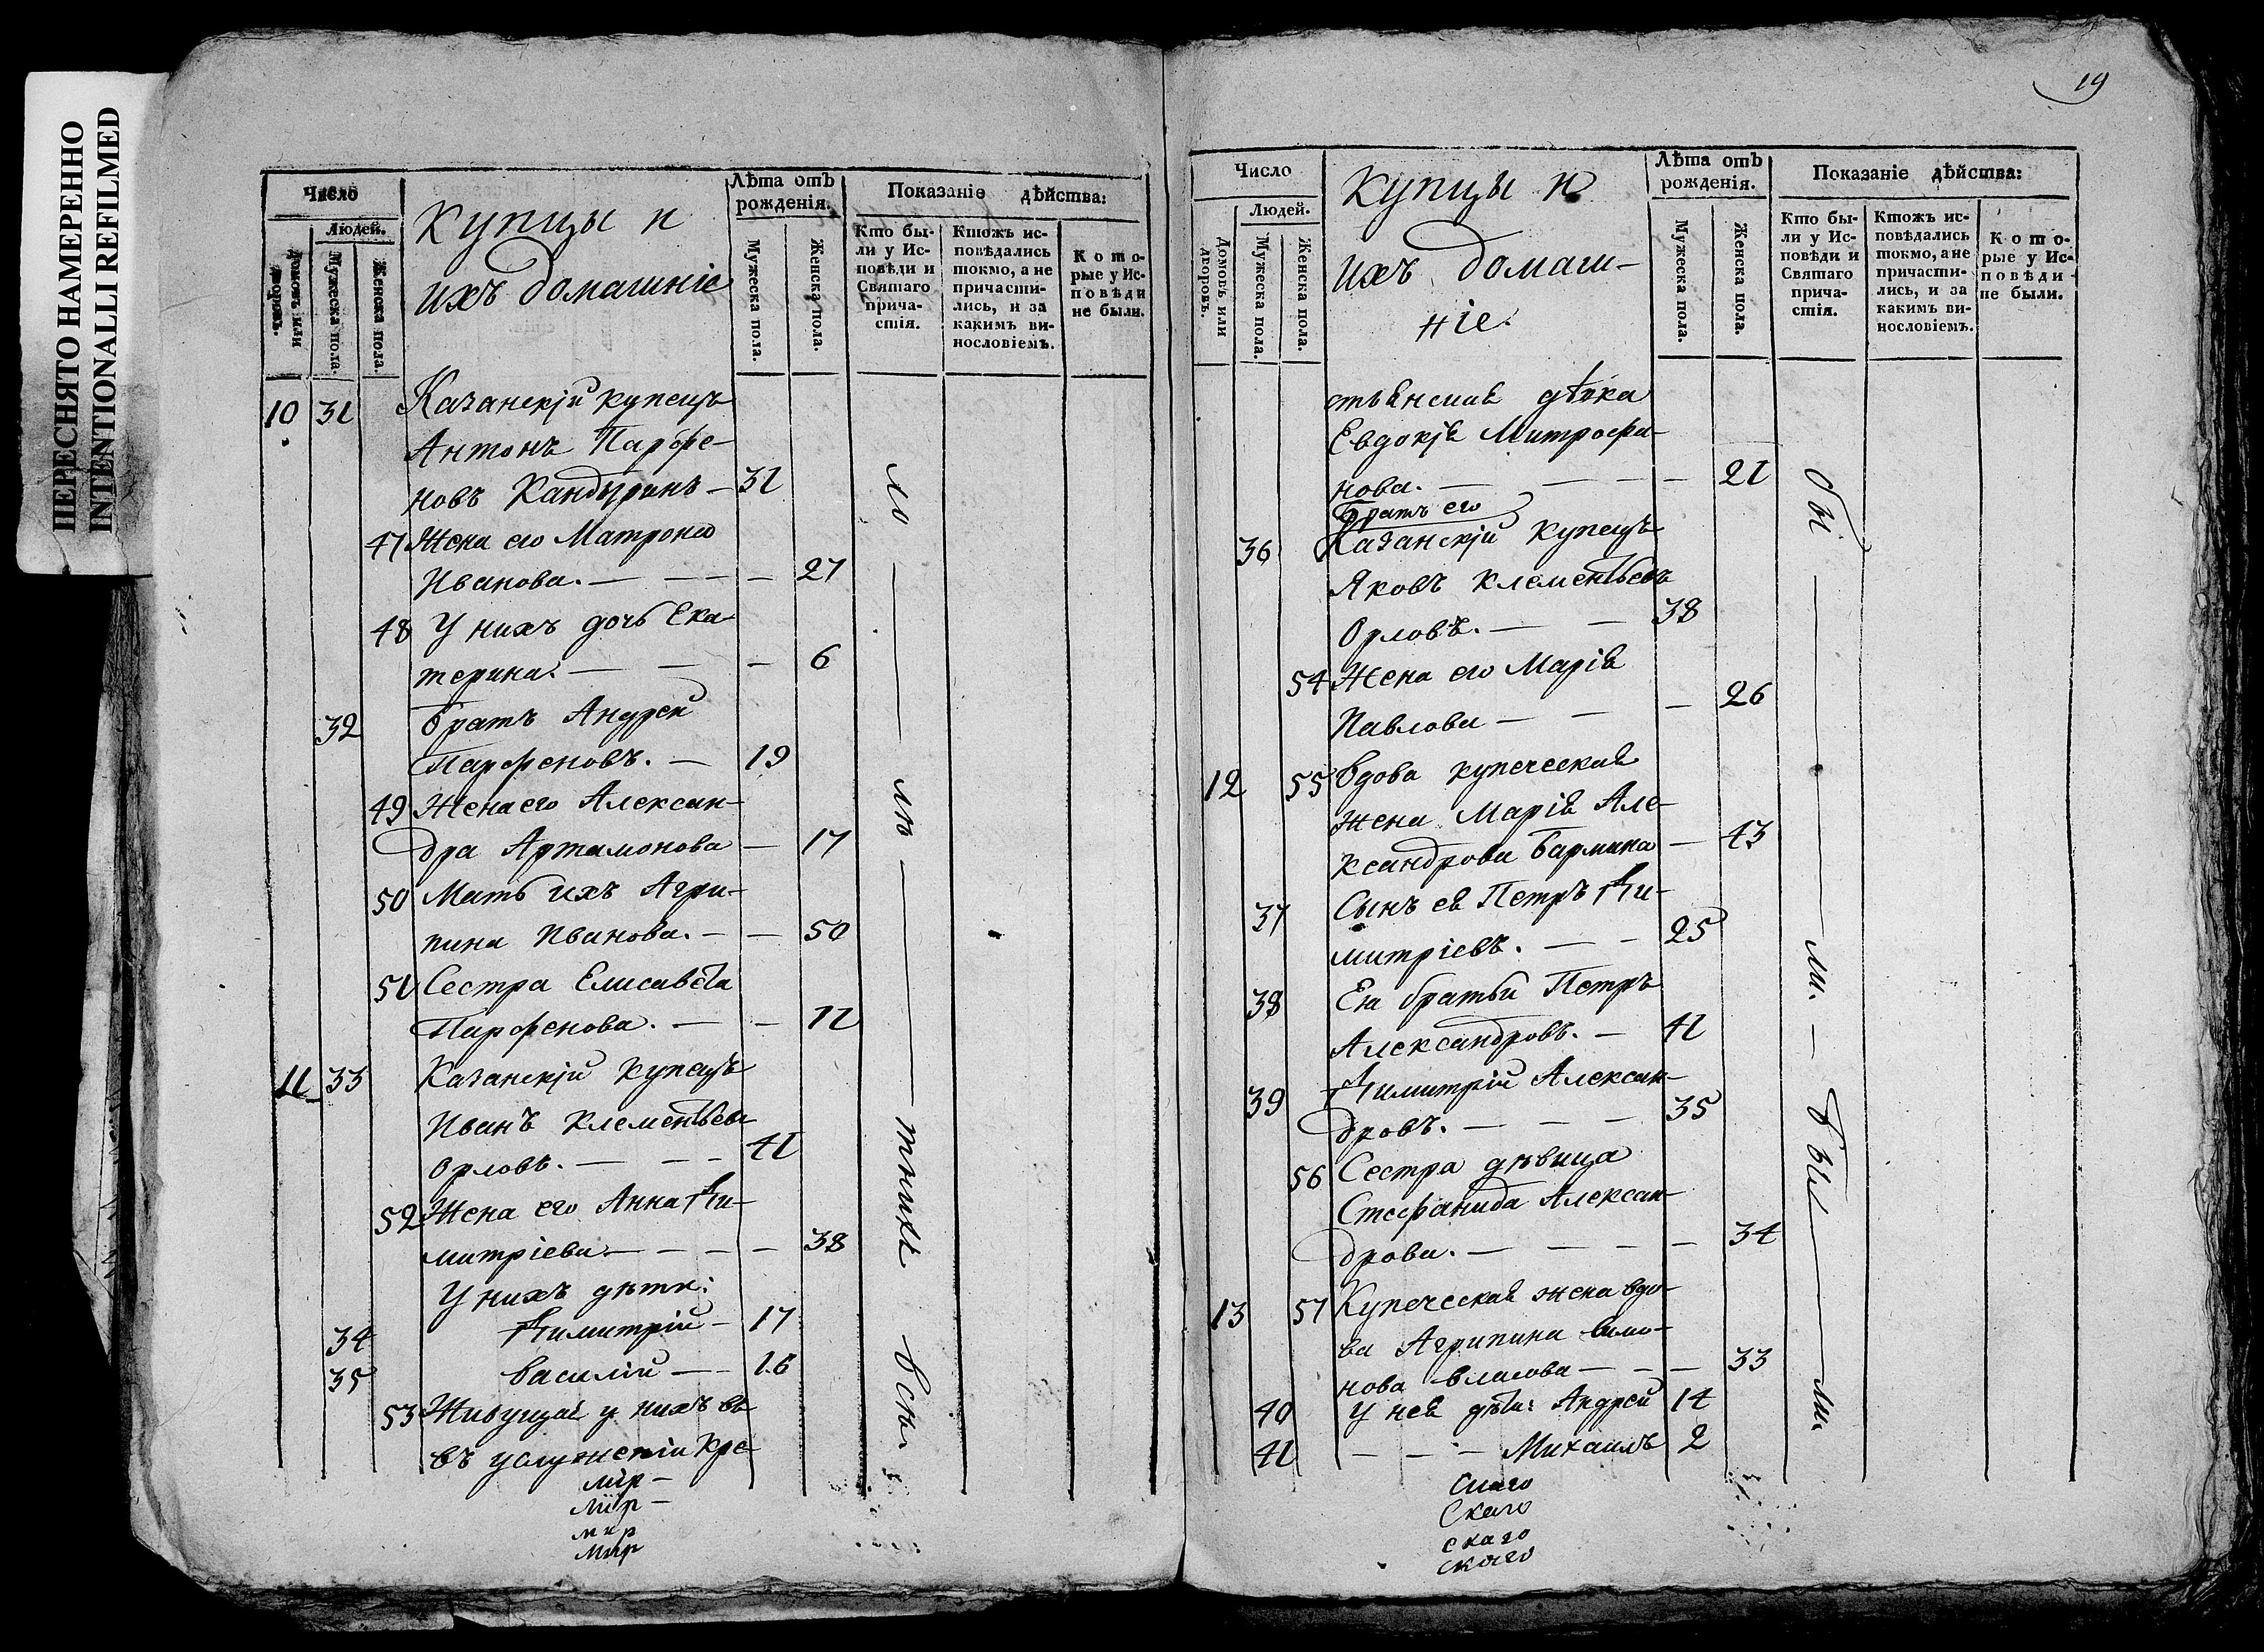 ПЕРЕСНЯТО НАМЕРЕННО
INTENTIONALLI REFILMED
Число
Людей.
Домовъ или дворовъ.
Мужеска пола.
Женска пола.
Купцы и
ихъ домашніе
Лѣта отъ рожденія.
Мужеска пола.
Женска пола.
Показаніе дѣйства:
Кто были у Исповѣди и Святаго причастія.
Ктожъ исповѣдались токмо, а не причастились, и за какимъ винословіемъ.
Которые у Исповѣди не были.
10 31 Казанскій купецъ
Антонъ Парфе-
новъ Кандыринъ — 31
47 Жена его Матрона
Иванова. — — — 27
48 У нихъ дочь Ека-
терина. — — — 6
32 братъ Андрей
Парфеновъ. — 19
49 Жена его Алексан-
дра Артамонова — 17
50 Мать ихъ Агри-
пина Иванова. — — 50
51 Сестра Елисавета
Парфенова. — — 12
11 33 Казанскій купецъ
Иванъ Клементьевъ
Орловъ. — — — 41
52 Жена его Анна Ди-
митріева — — — — 38
У нихъ дѣти:
34 Димитрій — 17
35 Василій — — 16
53 Живущая у нихъ въ
въ услуженіи кре-
мір —
мір —
мир
мир
всѣ.
19
Число
Людей.
Домовъ или дворовъ.
Мужеска пола.
Женска пола.
Купцы и
ихъ домаш-
ніе.
Лѣта отъ рожденія.
Мужеска пола.
Женска пола.
Показаніе дѣйства:
Кто были у Исповѣди и Святаго причастія.
Ктожъ исповѣдались токмо, а не причастились, и за какимъ винословіемъ.
Которые у Исповѣди не были.
стьянская дѣвка
Евдокія Митрофа-
нова. — — — — 21
Братъ его
36 Казанскій купецъ
Яковъ Клементьевъ
Орловъ. — — 38
54 Жена его Марія
Павлова — — — 26
12 55 Вдова купеческая
жена Марія Але-
ксандрова Бармина — 43
37 Сынъ ея Петръ Ди-
митріевъ. — — 25
38 Ея братья Петръ
Александровъ. — 41
39 Димитрій Алексан-
дровъ. — — — 35
56 Сестра дѣвица
Стефанида Алексан-
дрова. — — — — 34
13 57 Купеческая жена вдо-
ва Агрипина
нова Власова — — — 33
40 У нея дѣти: Андрей 14
41 — — — Михаилъ 2
скаго
Скаго
скаго
скаго
бы — ли. — бы — ли